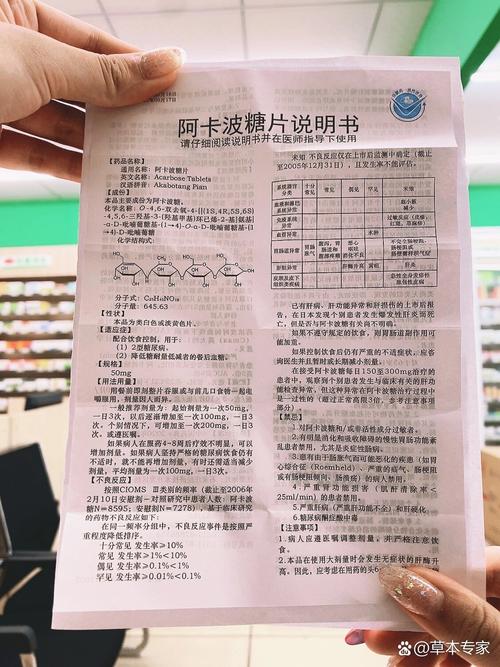 阿卡波糖片说明书
请仔细阅读说明书并在医师指导下使用
【药品名称】
通用名称：阿卡波糖片
英文名称：Acarbose Tablets
汉语拼音：Akabotang Pian
【成份】
本品主要成份为阿卡波糖。
化学名称：O-4,6-双去氧-4-[[(1S,4R,5S,6S)
-4,5,6-三羟基-3-(羟基甲基)环已烯-2-基]氨基]
-α-D-吡喃葡糖基-(1→4)-O-α-D-吡喃葡糖基-(1
→4)-D-吡喃葡糖
化学结构式：
分子式：C₂₅H₄₃NO₁₈
分子量：645.63
【性状】
本品为类白色或淡黄色片。
【适应症】
配合饮食控制，用于：
(1) 2型糖尿病。
(2) 降低糖耐量低减者的餐后血糖。
【规格】
50mg
【用法用量】
用餐前即刻整片吞服或与前几口食物一起咀
嚼服用，剂量因人而异。
一般推荐剂量为：起始剂量为一次50mg，
一日3次，以后逐渐增加至一次100mg，一日3
次，个别情况下，可增加至一次200mg，一日3
次，或遵医嘱。
如果病人在服药4-8周后疗效不明显，可以
增加剂量。如果病人坚持严格的糖尿病饮食仍有
不适时，就不能再增加剂量，有时还需适当减少
剂量，平均剂量为一次100mg，一日3次。
【不良反应】
按照CIOMS Ⅲ类别的频率（截止至2006年
2月10日安慰剂-对照研究中患者人数：阿卡波
糖N=8595；安慰剂N=7278），基于临床研究
的药物不良反应如下：
在同一频率分组中，不良反应事件是按照严
重程度降低排序。
十分常见 发生率≥10%
常见 发生率≥1%<10%
偶见 发生率≥0.1%<1%
罕见 发生率≥0.01%<0.1%
未知 不良反应仅在上市后监测中确定（截止
至2005年12月31日），且发生率不能评估。
系统器官分类 十分常见 常见 偶见 罕见 未知
血液和淋巴系统异常 血小板减少
免疫系统异常
血管异常 水肿
胃肠道异常 胃肠胀气
肝胆异常 肝酶升高 黄疸 肝炎
皮肤及皮下组织类疾病
已有肝病、肝功能异常和肝损伤的上市后报
告，在日本发现个别患者发生爆发性肝炎而死
亡，但是否与阿卡波糖有关尚不明确。
如果不遵守规定的饮食，则胃肠道副作用可
能加重。
如果控制饮食后仍有严重的不适症状，应咨
询医生并且暂时或长期减小剂量。
在接受阿卡波糖每日150至300mg治疗的
患者中，观察到个别患者发生与临床有关的肝功
能检查异常，但这种异常在阿卡波糖治疗过程中
是一过性的（超过正常高限3倍，参考注意事项
部分）
【禁忌】
1.对阿卡波糖和/或非活性成分过敏者。
2.有明显消化和吸收障碍的慢性胃肠功能紊
乱患者禁用，尤其是炎症性肠病。
3.患有由于肠胀气而可能恶化的疾患（如胃
心综合征（Roemheld）、严重的疝气、肠梗阻
或有肠梗阻倾向、肠溃疡）的病人禁用。
4.严重肾功能损害（肌酐清除率<
25ml/min）的患者禁用。
5.严重肝病（严重肝功能不全）和肝硬化
6.糖尿病酮症酸中毒
【注意事项】
1.病人应遵医嘱调整剂量，并严格注意饮
食。
2.本品在使用大剂量时会发生无症状的肝酶升
高。因此，应考虑在用药的头6
百家号/草本专家